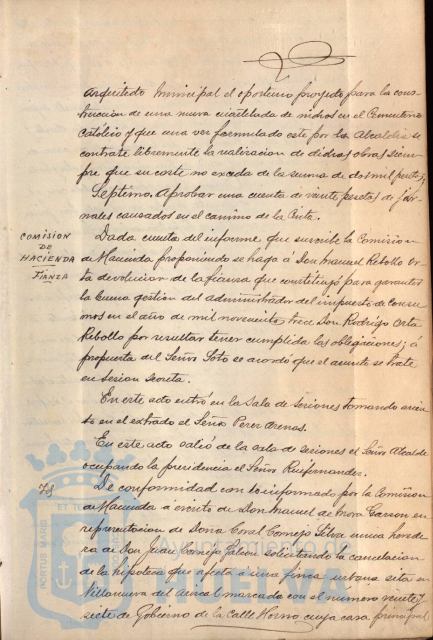 arquitecto municipal el oportuno proyecto para la cons-
truccion de una nueva cuartelada de nichos en el Cementerio
Católico y que una vez formulado este por la Alcaldia se
contrate libremente la realizacion de dichas obras siem-
pre que su coste no exceda de la suma de dos mil pesetas;
Septimo. Aprobar una cuenta de veinte pesetas de jor-
nales causados en el camino de la Cinta.
COMISION
DE
HACIENDA
FIANZA
Dada cuenta del informe que suscribe la Comision
de Hacienda proponiendo se haga á Don Manuel Rebollo Or-
ta devolucion de la fianza que constituyó para garantir
la buena gestion del administrador del impuesto de consu-
mos en el año de mil novecientos trece Don Rodrigo Orta
Rebollo por resultar tener cumplida las obligaciones; á
propuesta del Señor Soto se acordó que el asunto se trate
en sesion secreta.
En este acto entró en la Sala de Sesiones tomando asien-
to en el estrado el Señor Perez Arenas.
En este acto salió de la sala de sesiones el Señor Alcalde
ocupando la presidencia el Señor Ruifernandez.
De conformidad con lo informado por la Comision
de Hacienda á escrito de Don Manuel de Mora Garzon en
representacion de Doña Coral Cornejo Silva unica herede-
ra de Don Juan Cornejo solicitando la cancelacion
de la hipoteca que afecta a una finca urbana sita en
Villanueva del marcada con el numero veinte y
siete de Gobierno de la Calle Horno cuya casa principal
PORTUS MARIS
ET TE
Ayuntamiento de
HUELVA